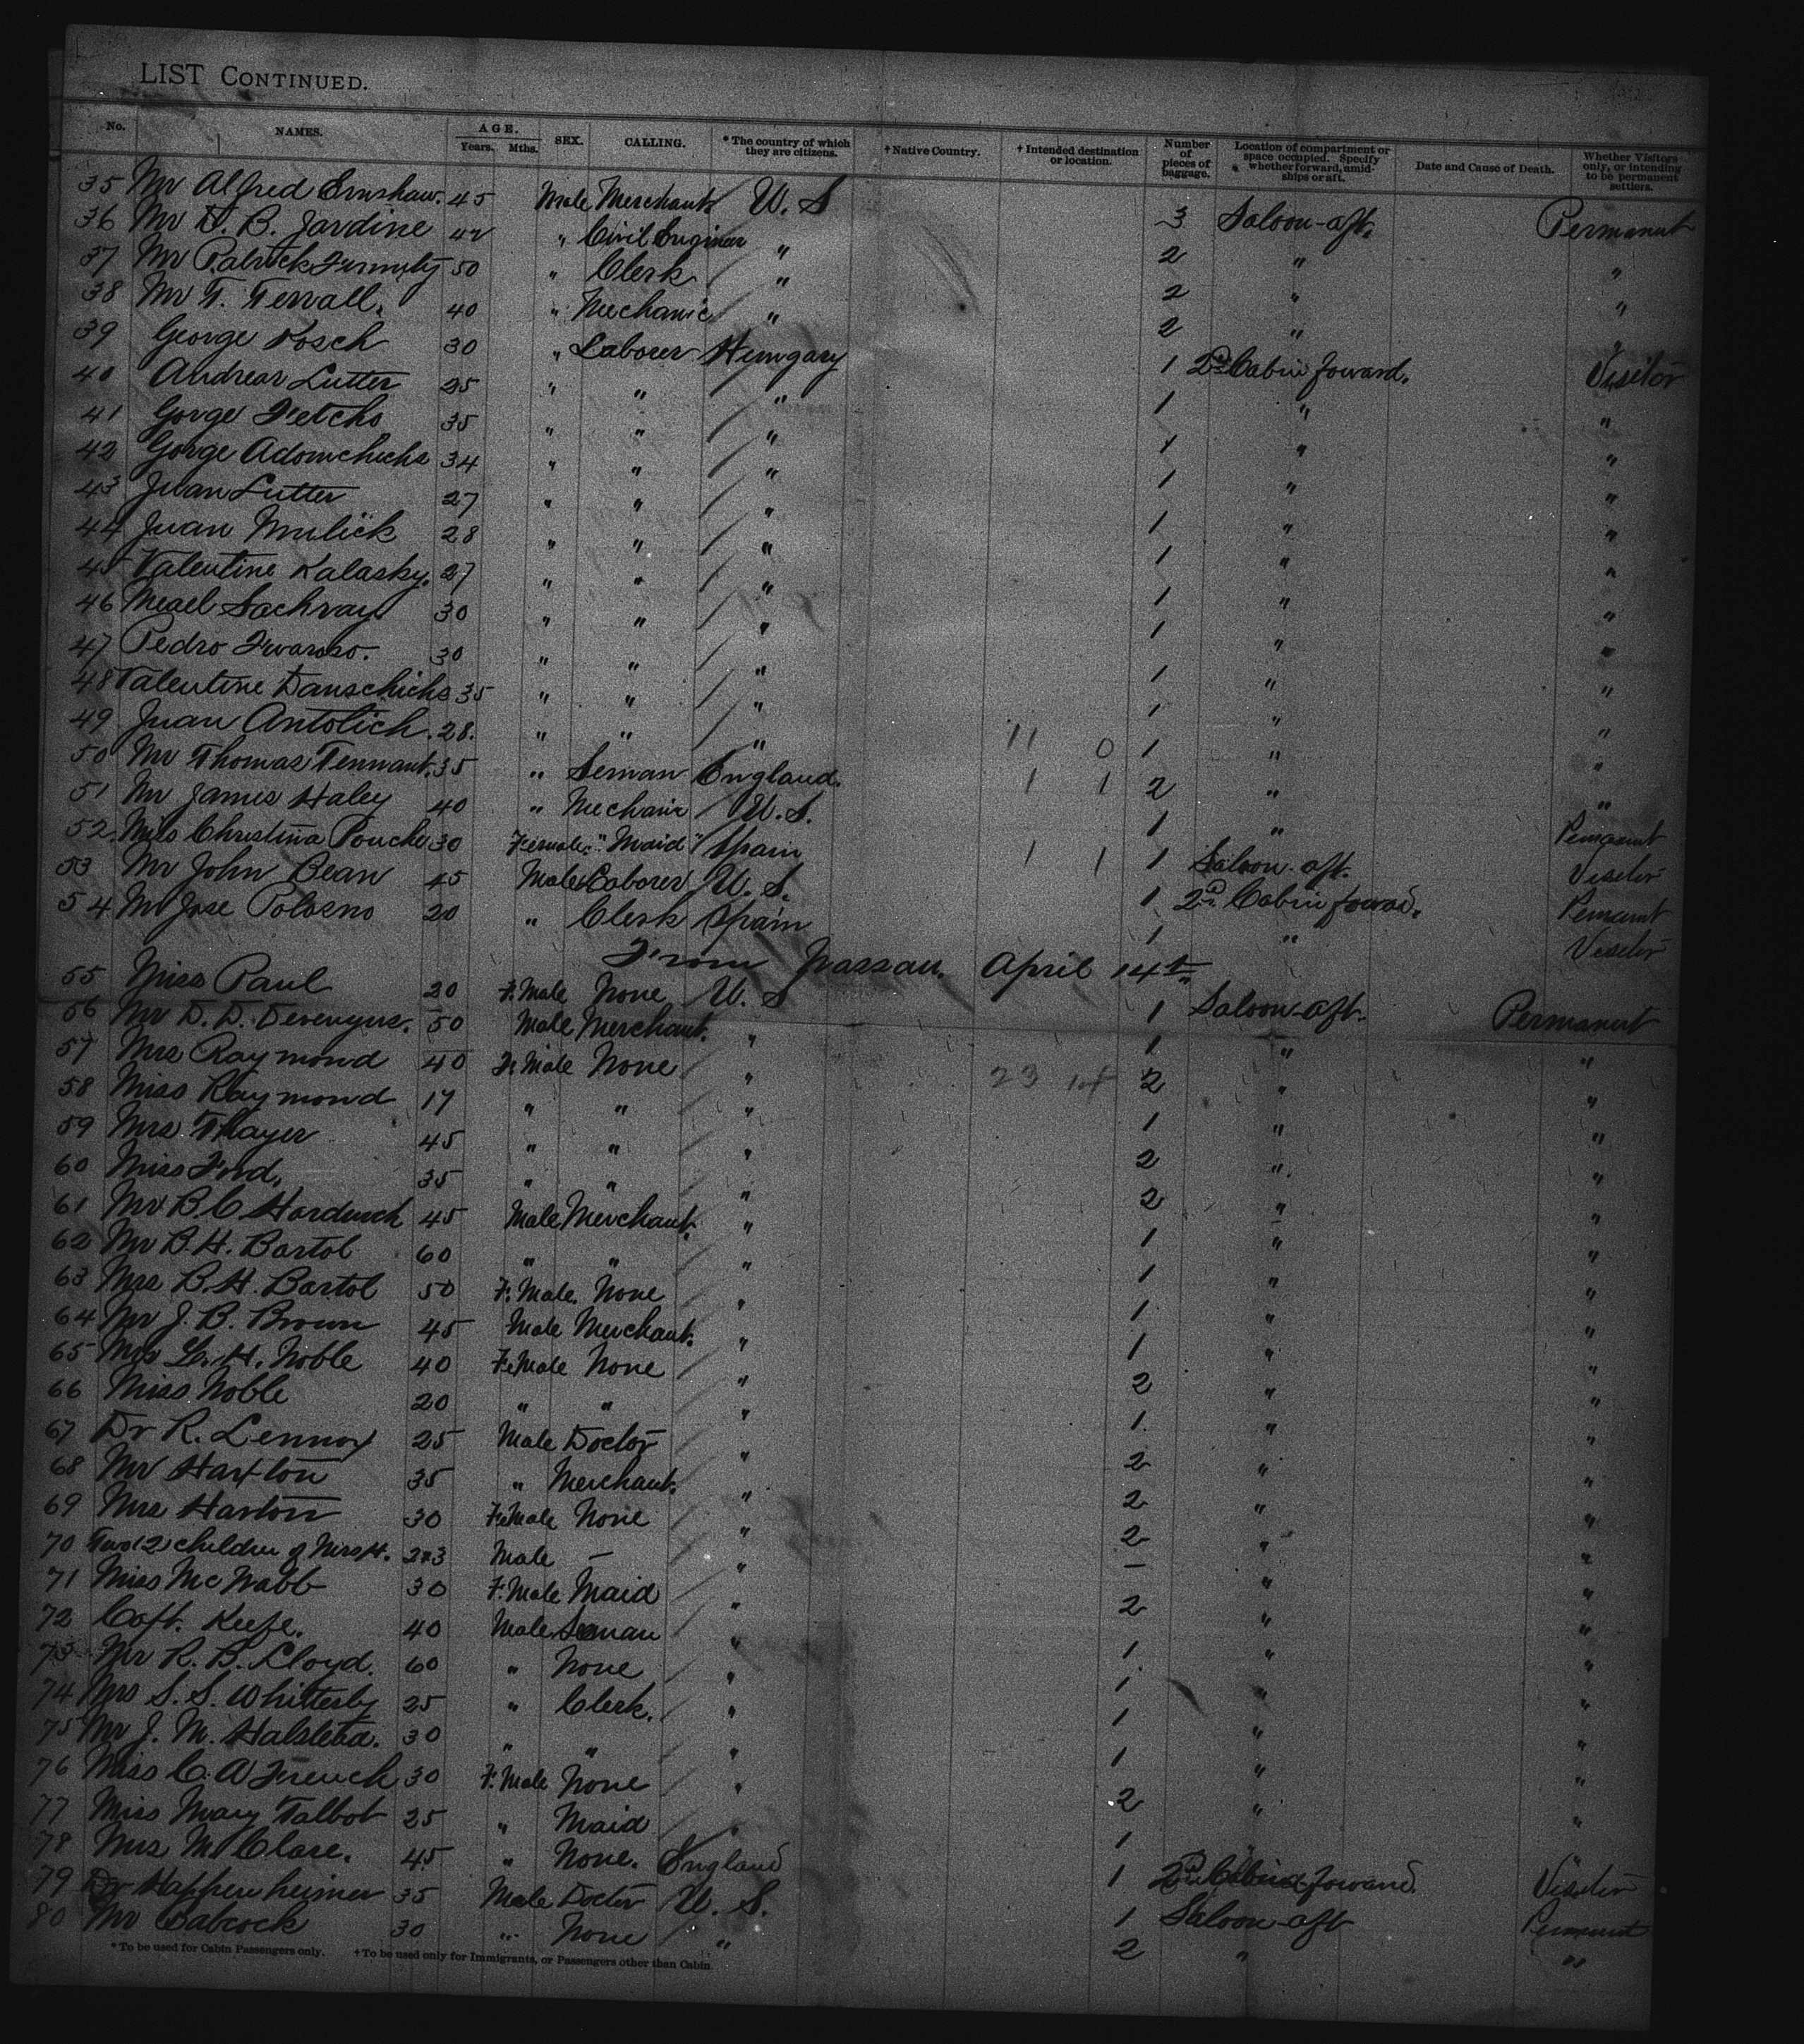 LIST CONTINUED.
No. NAMES. AGE. Years. Mths. SEX. CALLING. * The country of which they are citizens. † Native Country. † Intended destination or location. Number of pieces of baggage. Location of compartment or space occupied. Specify whether forward, amidships or aft. Date and Cause of Death. Whether Visitors only, or intending to be permanent settlers.
35 Mr Alfred Ernshaw. 45 Male Merchant U. S 3 Saloon-aft. Permanent
36 Mr D. B. Jardine 42 " Civil Enginer " 2 " "
37 Mr Patrick 50 " Clerk " 2 " "
38 Mr T. Terrall. 40 " Mechanic " 2 " "
39 George Kosch 30 " Laborer Hungary 1 2nd Cabin foward. Visitor
40 Andreas Lutter 25 " " " 1 " "
41 Gorge Fetchs 35 " " " 1 " "
42 Gorge Adomchichs 34 " " " 1 " "
43 Juan Lutter 27 " " " 1 " "
44 Juan Mulick 28 " " " 1 " "
45 Valentine Kalasky. 27 " " " 1 " "
46 Meael Sachray 30 " " " 1 " "
47 Pedro 30 " " " 1 " "
48 Valentine Danschichs 35 " " " 1 " "
49 Juan Antolich. 28. " " " 11 0 1 " "
50 Mr Thomas Tennant. 35 " Seman England. 1 1 2 " "
51 Mr James Haley 40 " Mechanic U. S. 1 " Permanent
52. Miss Christina Pouche 30 Female. "Maid" Spain 1 1 1 Saloon-aft. Visitor
53 Mr John Bean 45 Male Laborer U. S. 1 2nd Cabin foward. Permanent
54 Mr Jose Poloeno 20 " Clerk Spain 1 " Visitor
From Nassau. April 14th
55 Miss Paul 20 F. Male None U. S 1 Saloon-aft. Permanent
56 Mr D. D. 50 Male Merchant. " 1 " "
57 Mrs Raymond 40 Fe Male None " 23 14 2 " "
58 Miss Raymond 17 " " " 1 " "
59 Mrs Thayer 45 " " " 2 " "
60 Miss Ford. 35 " " " 2 " "
61 Mr B C Hardwick 45 Male Merchant. " 1 " "
62 Mr B. H. Bartol 60 " " " 1 " "
63 Mrs B. H. Bartol 50 F. Male. None " 1 " "
64 Mr J. B. Brown 45 Male Merchant. " 1 " "
65 Mrs L. H. Noble 40 Fe Male None " 2 " "
66 Miss Noble 20 " " " 1 " "
67 Dr R. Lennox 25 Male Doctor " 2 " "
68 Mr Haxton 35 " Merchant. " 2 " "
69 Mrs Haxton 30 Fe Male None " 2 " "
70 Two (2) children of Mrs H. 2&3 Male — " — " "
71 Miss McNabb 30 F. Male Maid " 2 " "
72 Capt. Keefe. 40 Male Seman " 1 " "
73 Mr R. B. Lloyd. 60 " None " 1 " "
74 Mr S. S. Whitterly 25 " Clerk. " 1 " "
75 Mr J. M. Halstead. 30 " " " 1 " "
76 Miss C. A French 30 F. Male None " 2 " "
77 Miss Mary Talbot 25 " Maid " 1 " "
78 Mrs McClare. 45 " None. England 1 2nd Cabin foward. Visitor
79 Dr Happenheimer 35 Male Docter U. S. 1 Saloon-aft Permanent
80 Mr Babcock 30 " None " 2 " "
* To be used for Cabin Passengers only. † To be used only for Immigrants, or Passengers other than Cabin.